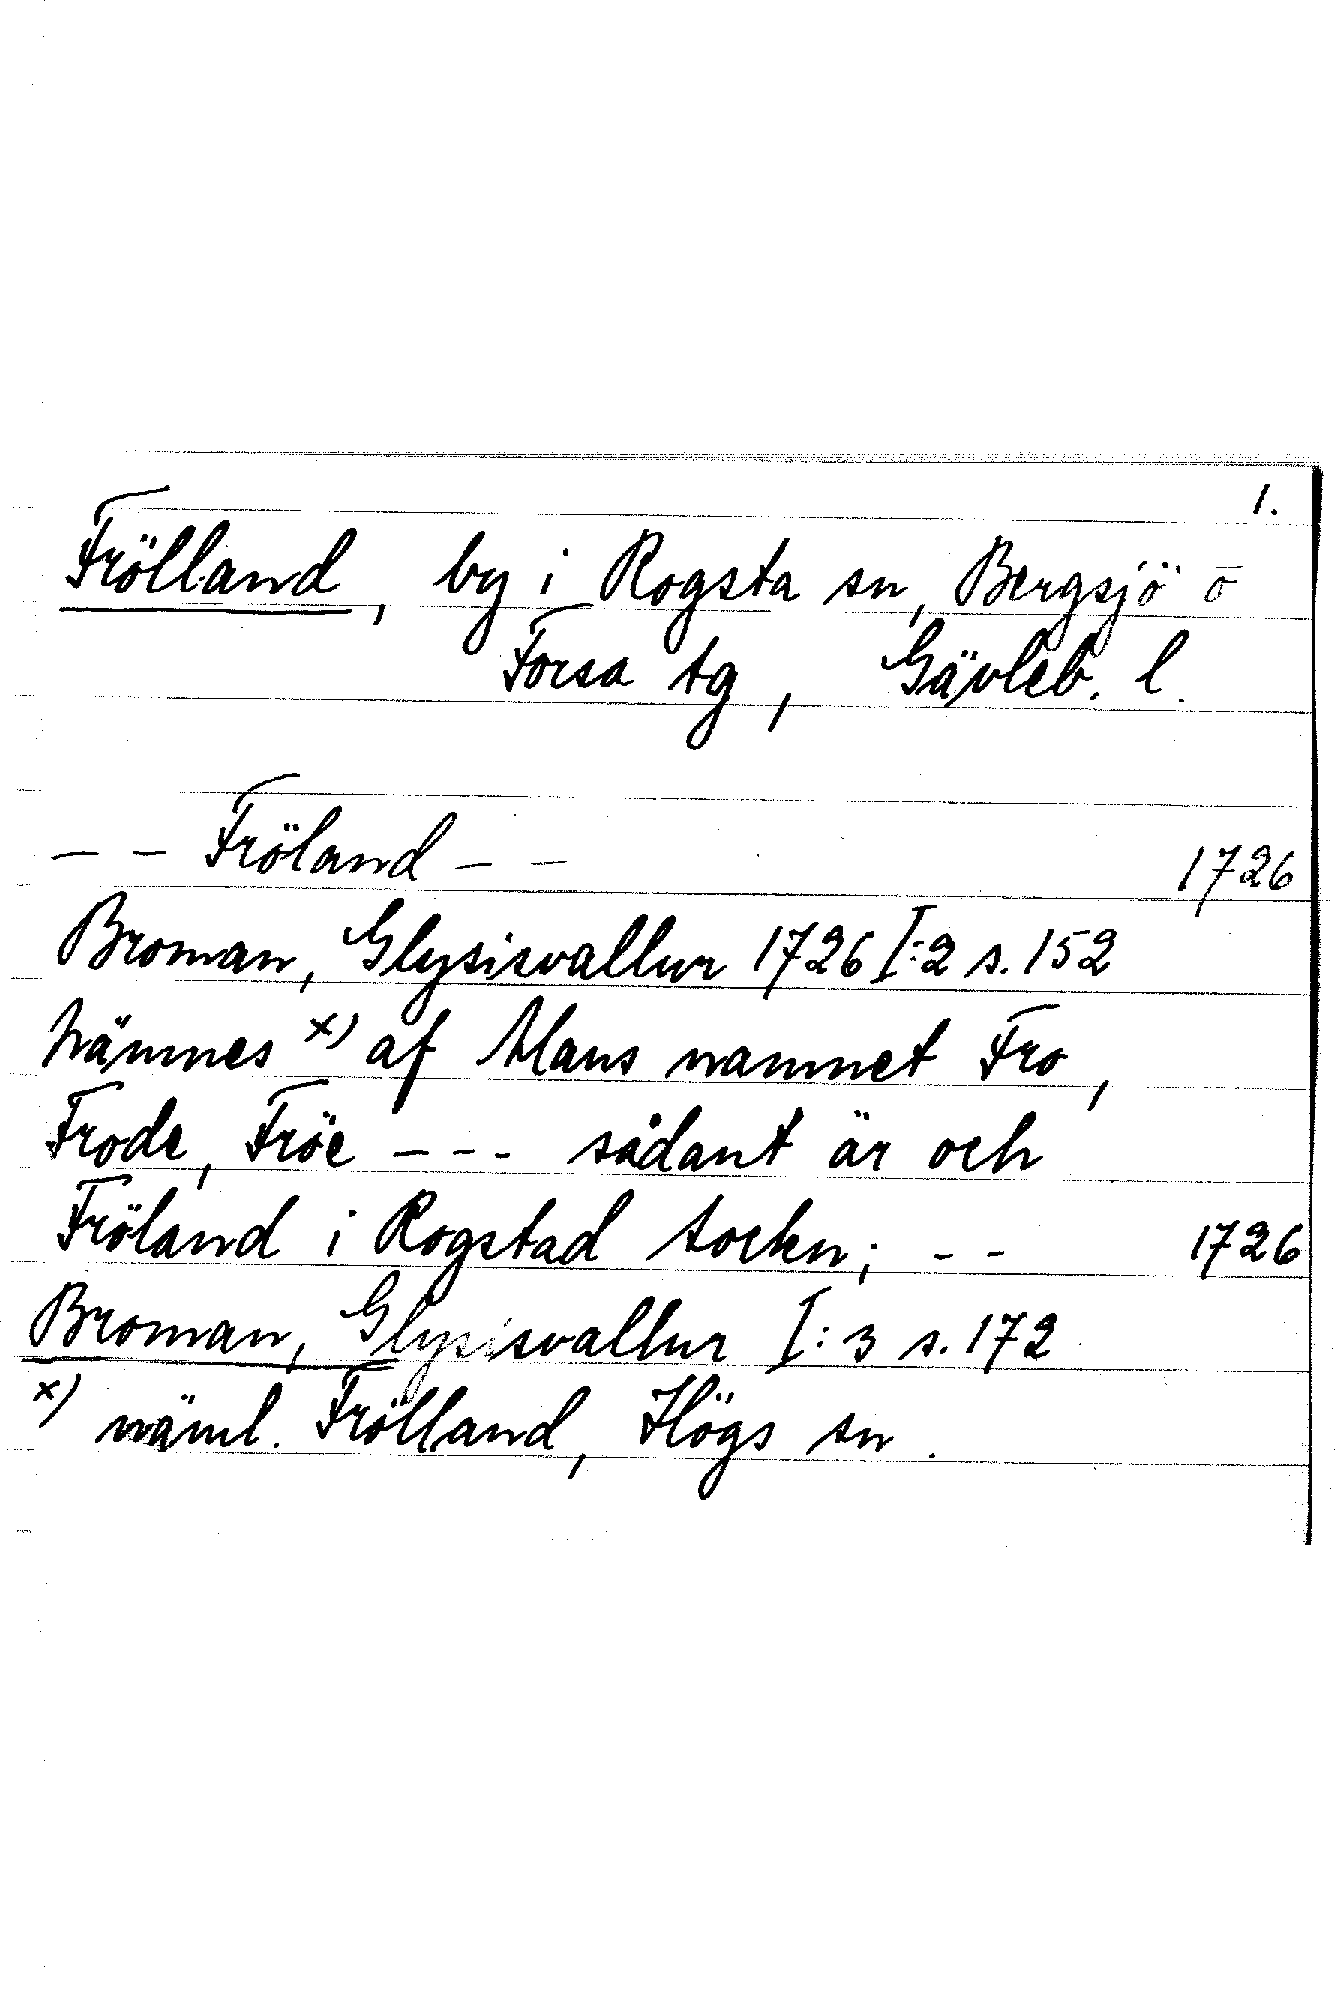 1.
Frölland, by i Rogsta sn, Bergsjö o
Forsa tg, Gävleb. l.
– – Fröland – – 1726
Broman, Glysisvallur 1726 I:2 s. 152
Nämnes x) af Mans namnet Fro,
Frode, Fröe – – – sådant är och
Fröland i Rogstad sockn; – – 1726
Broman, Glysisvallur I:3 s. 172
x) näml. Frölland, Högs sn.